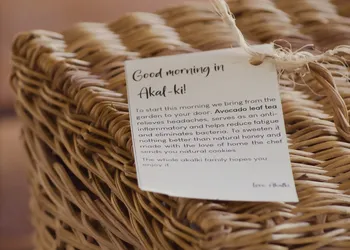 Good morning in
Akal-ki!
To start this morning we bring from the
garden to your door: Avocado leaf tea
relieves headaches, serves as an anti-
inflammatory and helps reduce fatigue
and eliminates bacteria. To sweeten it
nothing better than natural honey and
made with the love of home the chef
sends you natural cookies.
The whole akalki family hopes you
enjoy it.
love, Akalki